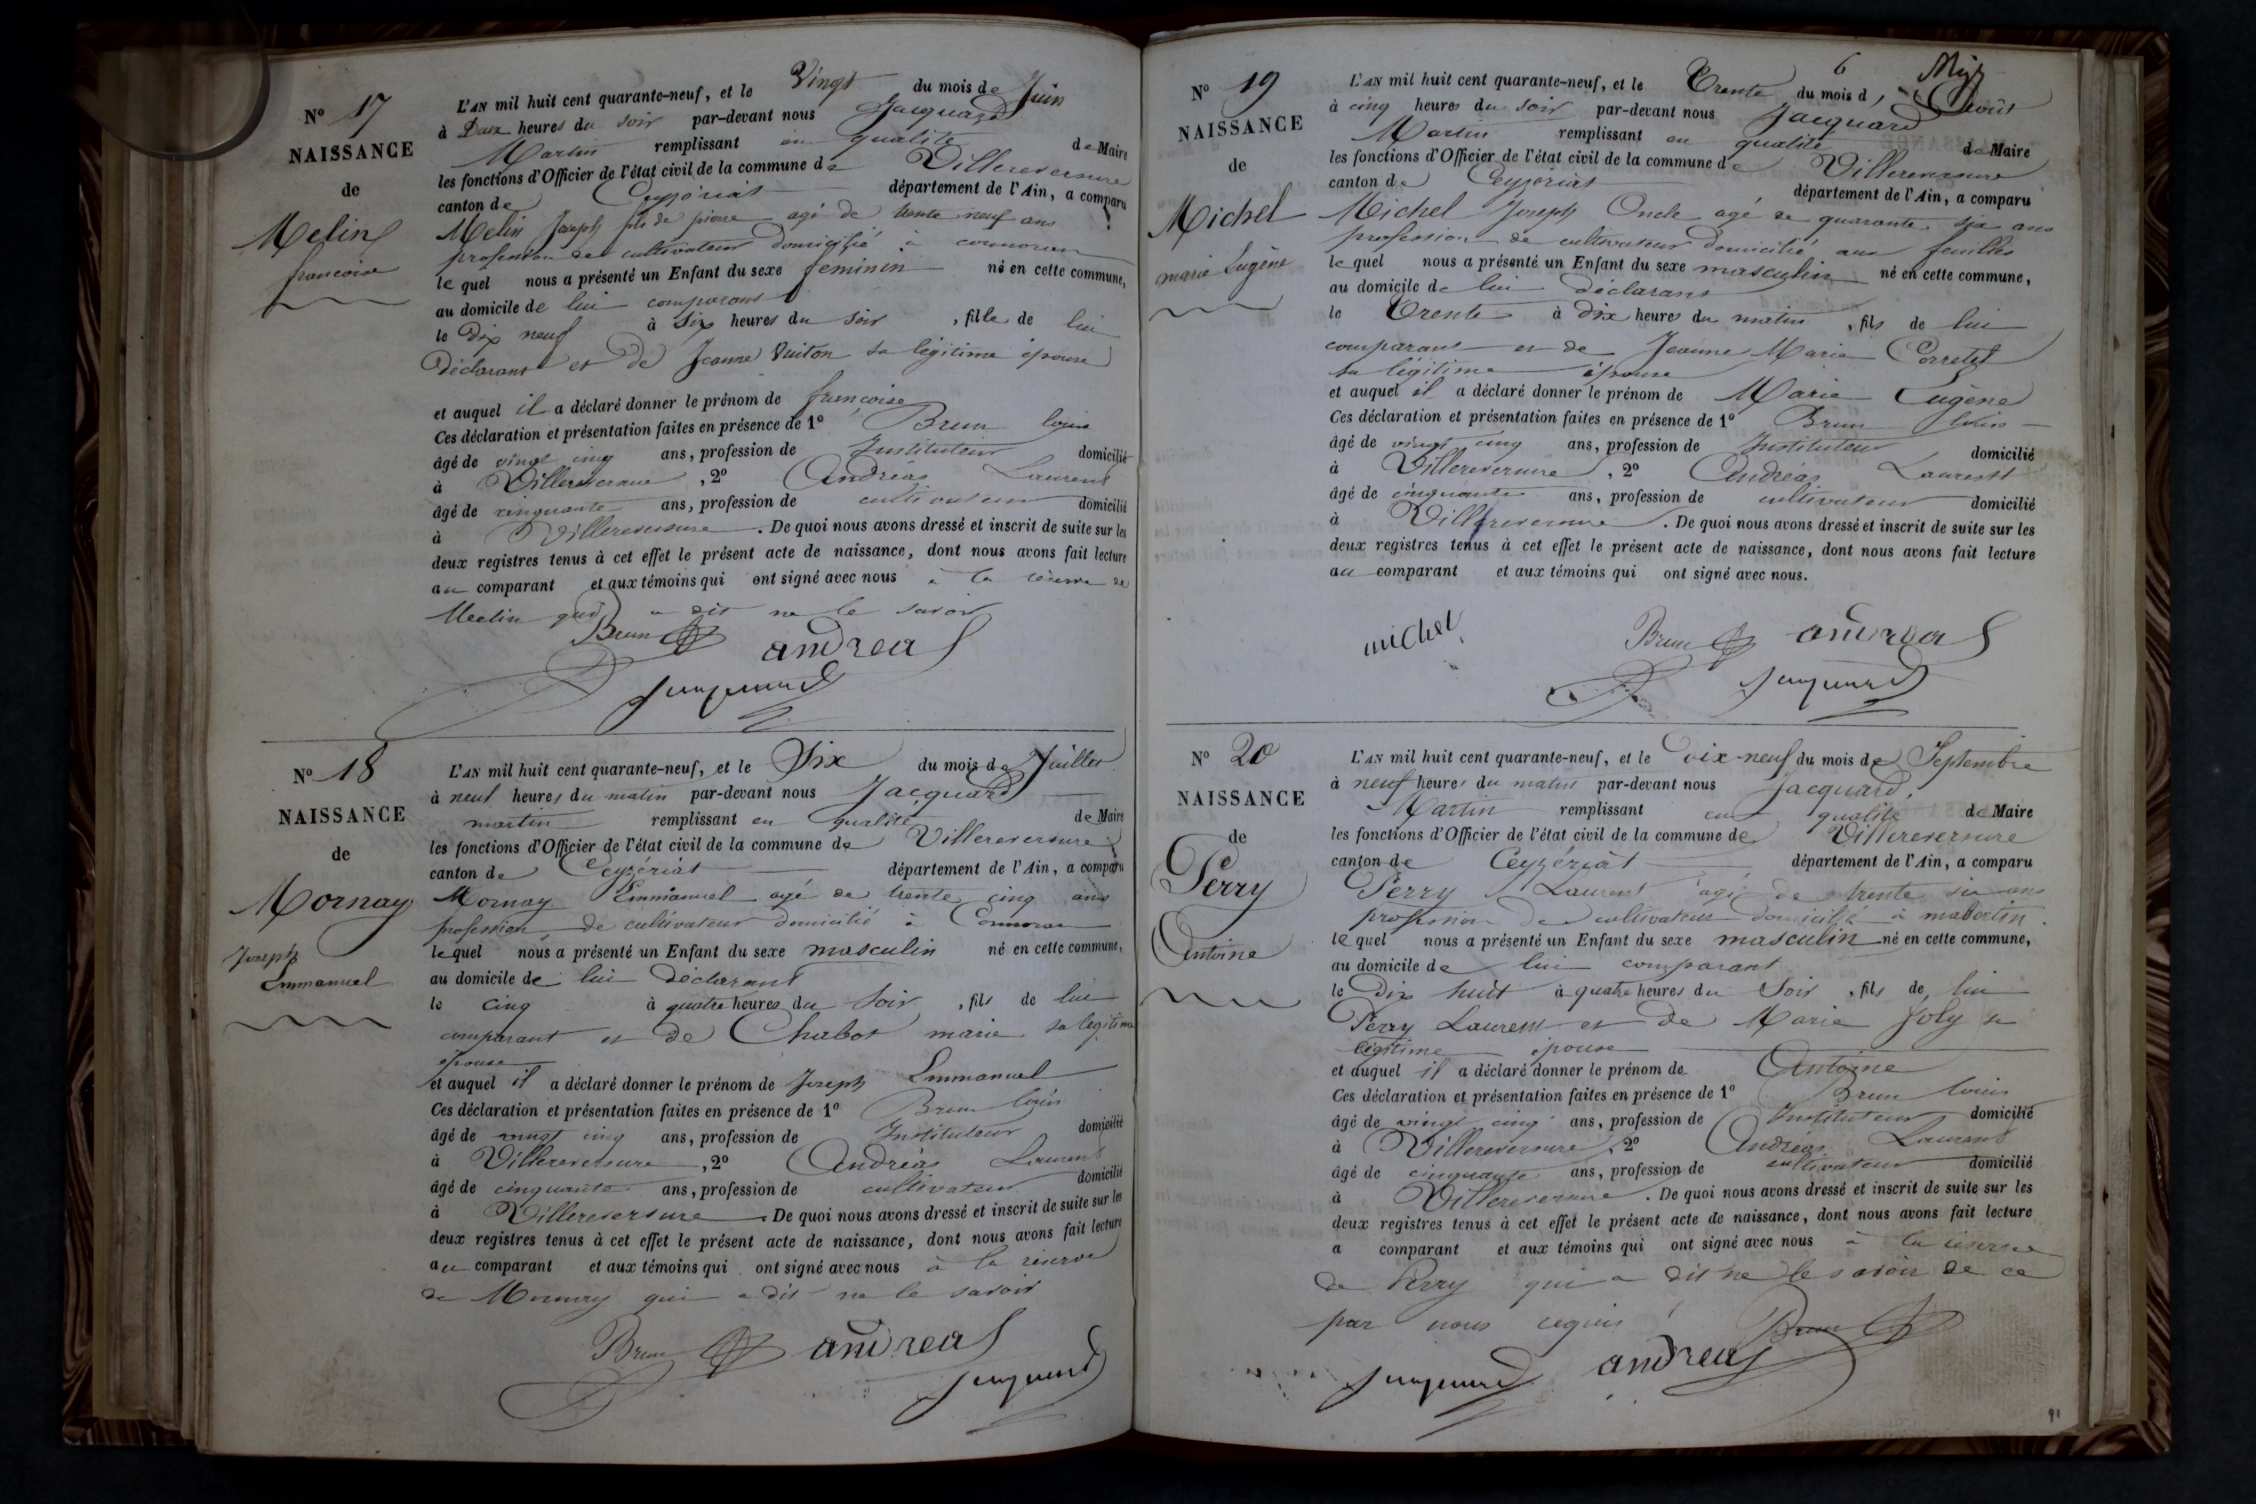 Nº 17
NAISSANCE
de
Melin
francoise
L'AN mil huit cent quarante-neuf, et le Vingt du mois de Juin
à Deux heures du soir par-devant nous Jacquard
Martin remplissant en qualité de Maire
les fonctions d'Officier de l'état civil de la commune de Villereversure
canton de Ceyzériat département de l'Ain, a comparu
Melin Joseph fils de pierre agé de trente neuf ans
profession de cultivateur domicilié à
le quel nous a présenté un Enfant du sexe feminin né en cette commune,
au domicile de lui comparant
le Dix neuf à Six heures du Soir, fille de lui
Déclarant et de Jeanne Vuiton sa légitime épouse
et auquel il a déclaré donner le prénom de françoise
Ces déclaration et présentation faites en présence de 1º Brun louis
âgé de vingt cinq ans, profession de Instituteur domicilié
à Villereversure, 2º Andréas Laurent
âgé de cinquante ans, profession de cultivateur domicilié
à Villereversure. De quoi nous avons dressé et inscrit de suite sur les
deux registres tenus à cet effet le présent acte de naissance, dont nous avons fait lecture
au comparant et aux témoins qui ont signé avec nous à la réserve de
Meelin qui a dit ne le savoir
Brun andreas
Jacquard
Nº 18
NAISSANCE
de
Mornay
Joseph
Emmanuel
L'AN mil huit cent quarante-neuf, et le Six du mois de Juillet
à neuf heures du matin par-devant nous Jacquard
martin remplissant en qualité de Maire
les fonctions d'Officier de l'état civil de la commune de Villereversure
canton de Ceyzériat département de l'Ain, a comparu
Mornay Emmanuel agé de trente cinq ans
profession de cultivateur domicilié à
lequel nous a présenté un Enfant du sexe masculin né en cette commune,
au domicile de lui déclarant
le cinq à quatre heures du Soir, fils de lui
comparant et de Chabot marie sa légitime
épouse
et auquel il a déclaré donner le prénom de Joseph Emmanuel
Ces déclaration et présentation faites en présence de 1º Brun louis
âgé de vingt cinq ans, profession de Instituteur domicilié
à Villereversure, 2º Andréas Laurent
âgé de cinquante ans, profession de cultivateur domicilié
à Villereversure. De quoi nous avons dressé et inscrit de suite sur les
deux registres tenus à cet effet le présent acte de naissance, dont nous avons fait lecture
au comparant et aux témoins qui ont signé avec nous à la réserve
de Mornay qui a dit ne le savoir
Brun andreas
Jacquard
6
Nº 19
NAISSANCE
de
Michel
marie Eugène
L'AN mil huit cent quarante-neuf, et le Trente du mois d'Août
à cinq heures du soir par-devant nous Jacquard
Martin remplissant en qualité de Maire
les fonctions d'Officier de l'état civil de la commune de Villereversure
canton de Ceyzériat département de l'Ain, a comparu
Michel Joseph Oncle agé de quarante six ans
profession de cultivateur domicilié aux feuilles
le quel nous a présenté un Enfant du sexe masculin né en cette commune,
au domicile de lui déclarant
le Trente à dix heures du matin, fils de lui
comparant et de Jeanne Marie
sa légitime épouse
et auquel il a déclaré donner le prénom de Marie Eugène
Ces déclaration et présentation faites en présence de 1º Brun louis
âgé de vingt cinq ans, profession de Instituteur domicilié
à Villereversure, 2º Andréas Laurent
âgé de cinquante ans, profession de cultivateur domicilié
à Villereversure. De quoi nous avons dressé et inscrit de suite sur les
deux registres tenus à cet effet le présent acte de naissance, dont nous avons fait lecture
au comparant et aux témoins qui ont signé avec nous.
michel Brun andreas
Jacquard
Nº 20
NAISSANCE
de
Perry
Antoine
L'AN mil huit cent quarante-neuf, et le Dix-neuf du mois de Septembre
à neuf heures du matin par-devant nous Jacquard
Martin remplissant en qualité de Maire
les fonctions d'Officier de l'état civil de la commune de Villereversure
canton de Ceyzériat département de l'Ain, a comparu
Perry Laurent agé de trente six ans
profession de cultivateur domicilié à
le quel nous a présenté un Enfant du sexe masculin né en cette commune,
au domicile de lui comparant
le Dix huit à quatre heures du Soir, fils de lui
Perry Laurent et de Marie Joly sa
légitime épouse
et auquel il a déclaré donner le prénom de Antoine
Ces déclaration et présentation faites en présence de 1º Brun louis
âgé de vingt cinq ans, profession de Instituteur domicilié
à Villereversure, 2º Andréas Laurent
âgé de cinquante ans, profession de cultivateur domicilié
à Villereversure. De quoi nous avons dressé et inscrit de suite sur les
deux registres tenus à cet effet le présent acte de naissance, dont nous avons fait lecture
a comparant et aux témoins qui ont signé avec nous à la réserve
de Perry qui a dit ne le savoir de ce
par nous requis
Brun
Jacquard andreas
91